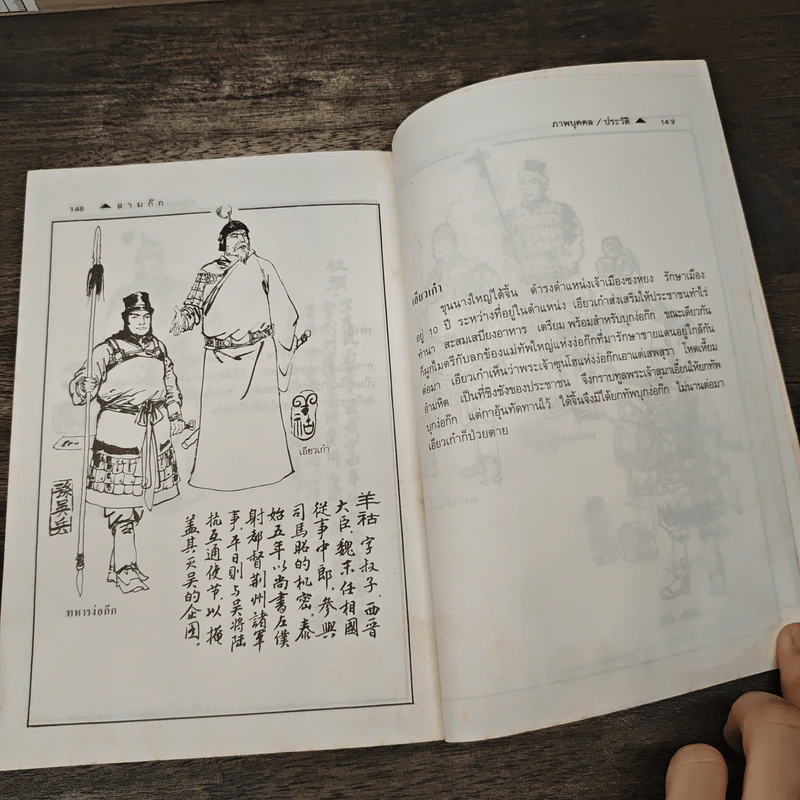 148 สามก๊ก
祜
เอียวเก๋า
孫吳兵
ทหารง่อก๊ก
羊祜,字叔子,西晋
大臣,魏末任相國
從事中郎,參與
司馬昭的机密,泰
始五年以尚書左僕
射都督荆州諸軍
事,平日則与吴將陸
抗互通使节,以掩
盖其灭吴的企图。
ภาพบุคคล / ประวัติ 149
เอียวเก๋า
ขุนนางใหญ่ไต้จิ้น ดำรงตำแหน่งเจ้าเมืองซงหยง รักษาเมือง
อยู่ 10 ปี ระหว่างที่อยู่ในตำแหน่ง เอียวเก๋าส่งเสริมให้ประชาชนทำไร่
ทำนา สะสมเสบียงอาหาร เตรียมพร้อมสำหรับบุกง่อก๊ก ขณะเดียวกัน
ก็ผูกไมตรีกับลกข้องแม่ทัพใหญ่แห่งง่อก๊กที่มารักษาชายแดนอยู่ใกล้กัน
ต่อมา เอียวเก๋าเห็นว่าพระเจ้าซุนโฮแห่งง่อก๊กเอาแต่เสพสุรา โหดเหี้ยม
อำมหิต เป็นที่ชิงชังของประชาชน จึงกราบทูลพระเจ้าสุมาเอี๋ยนให้ยกทัพ
บุกง่อก๊ก แต่กาอุ้นทัดทานไว้ ไต้จิ้นจึงมิได้ยกทัพบุกง่อก๊ก ไม่นานต่อมา
เอียวเก๋าก็ป่วยตาย